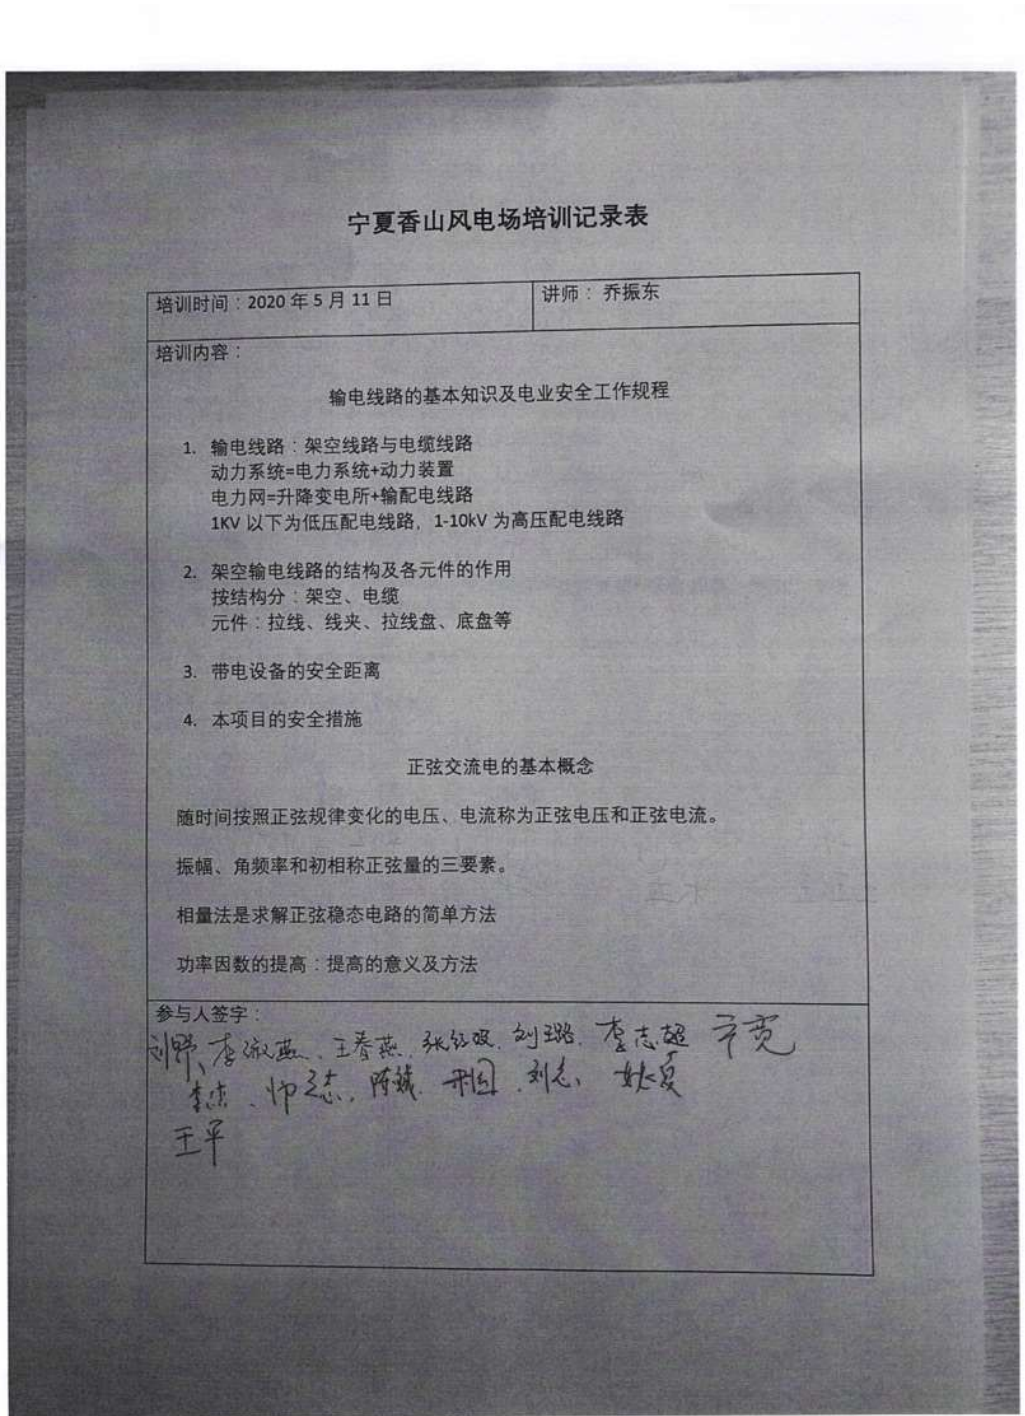 宁夏香山风电场培训记录表
培训时间：2020 年 5 月 11 日
讲师： 乔振东
培训内容：
输电线路的基本知识及电业安全工作规程
1. 输电线路：架空线路与电缆线路
动力系统=电力系统+动力装置
电力网=升降变电所+输配电线路
1KV 以下为低压配电线路，1-10kV 为高压配电线路
2. 架空输电线路的结构及各元件的作用
按结构分：架空、电缆
元件：拉线、线夹、拉线盘、底盘等
3. 带电设备的安全距离
4. 本项目的安全措施
正弦交流电的基本概念
随时间按照正弦规律变化的电压、电流称为正弦电压和正弦电流。
振幅、角频率和初相称正弦量的三要素。
相量法是求解正弦稳态电路的简单方法
功率因数的提高：提高的意义及方法
参与人签字：
刘野、李淑燕、王春燕、刘璐、李志超
李杰、刘志、姚夏
王军